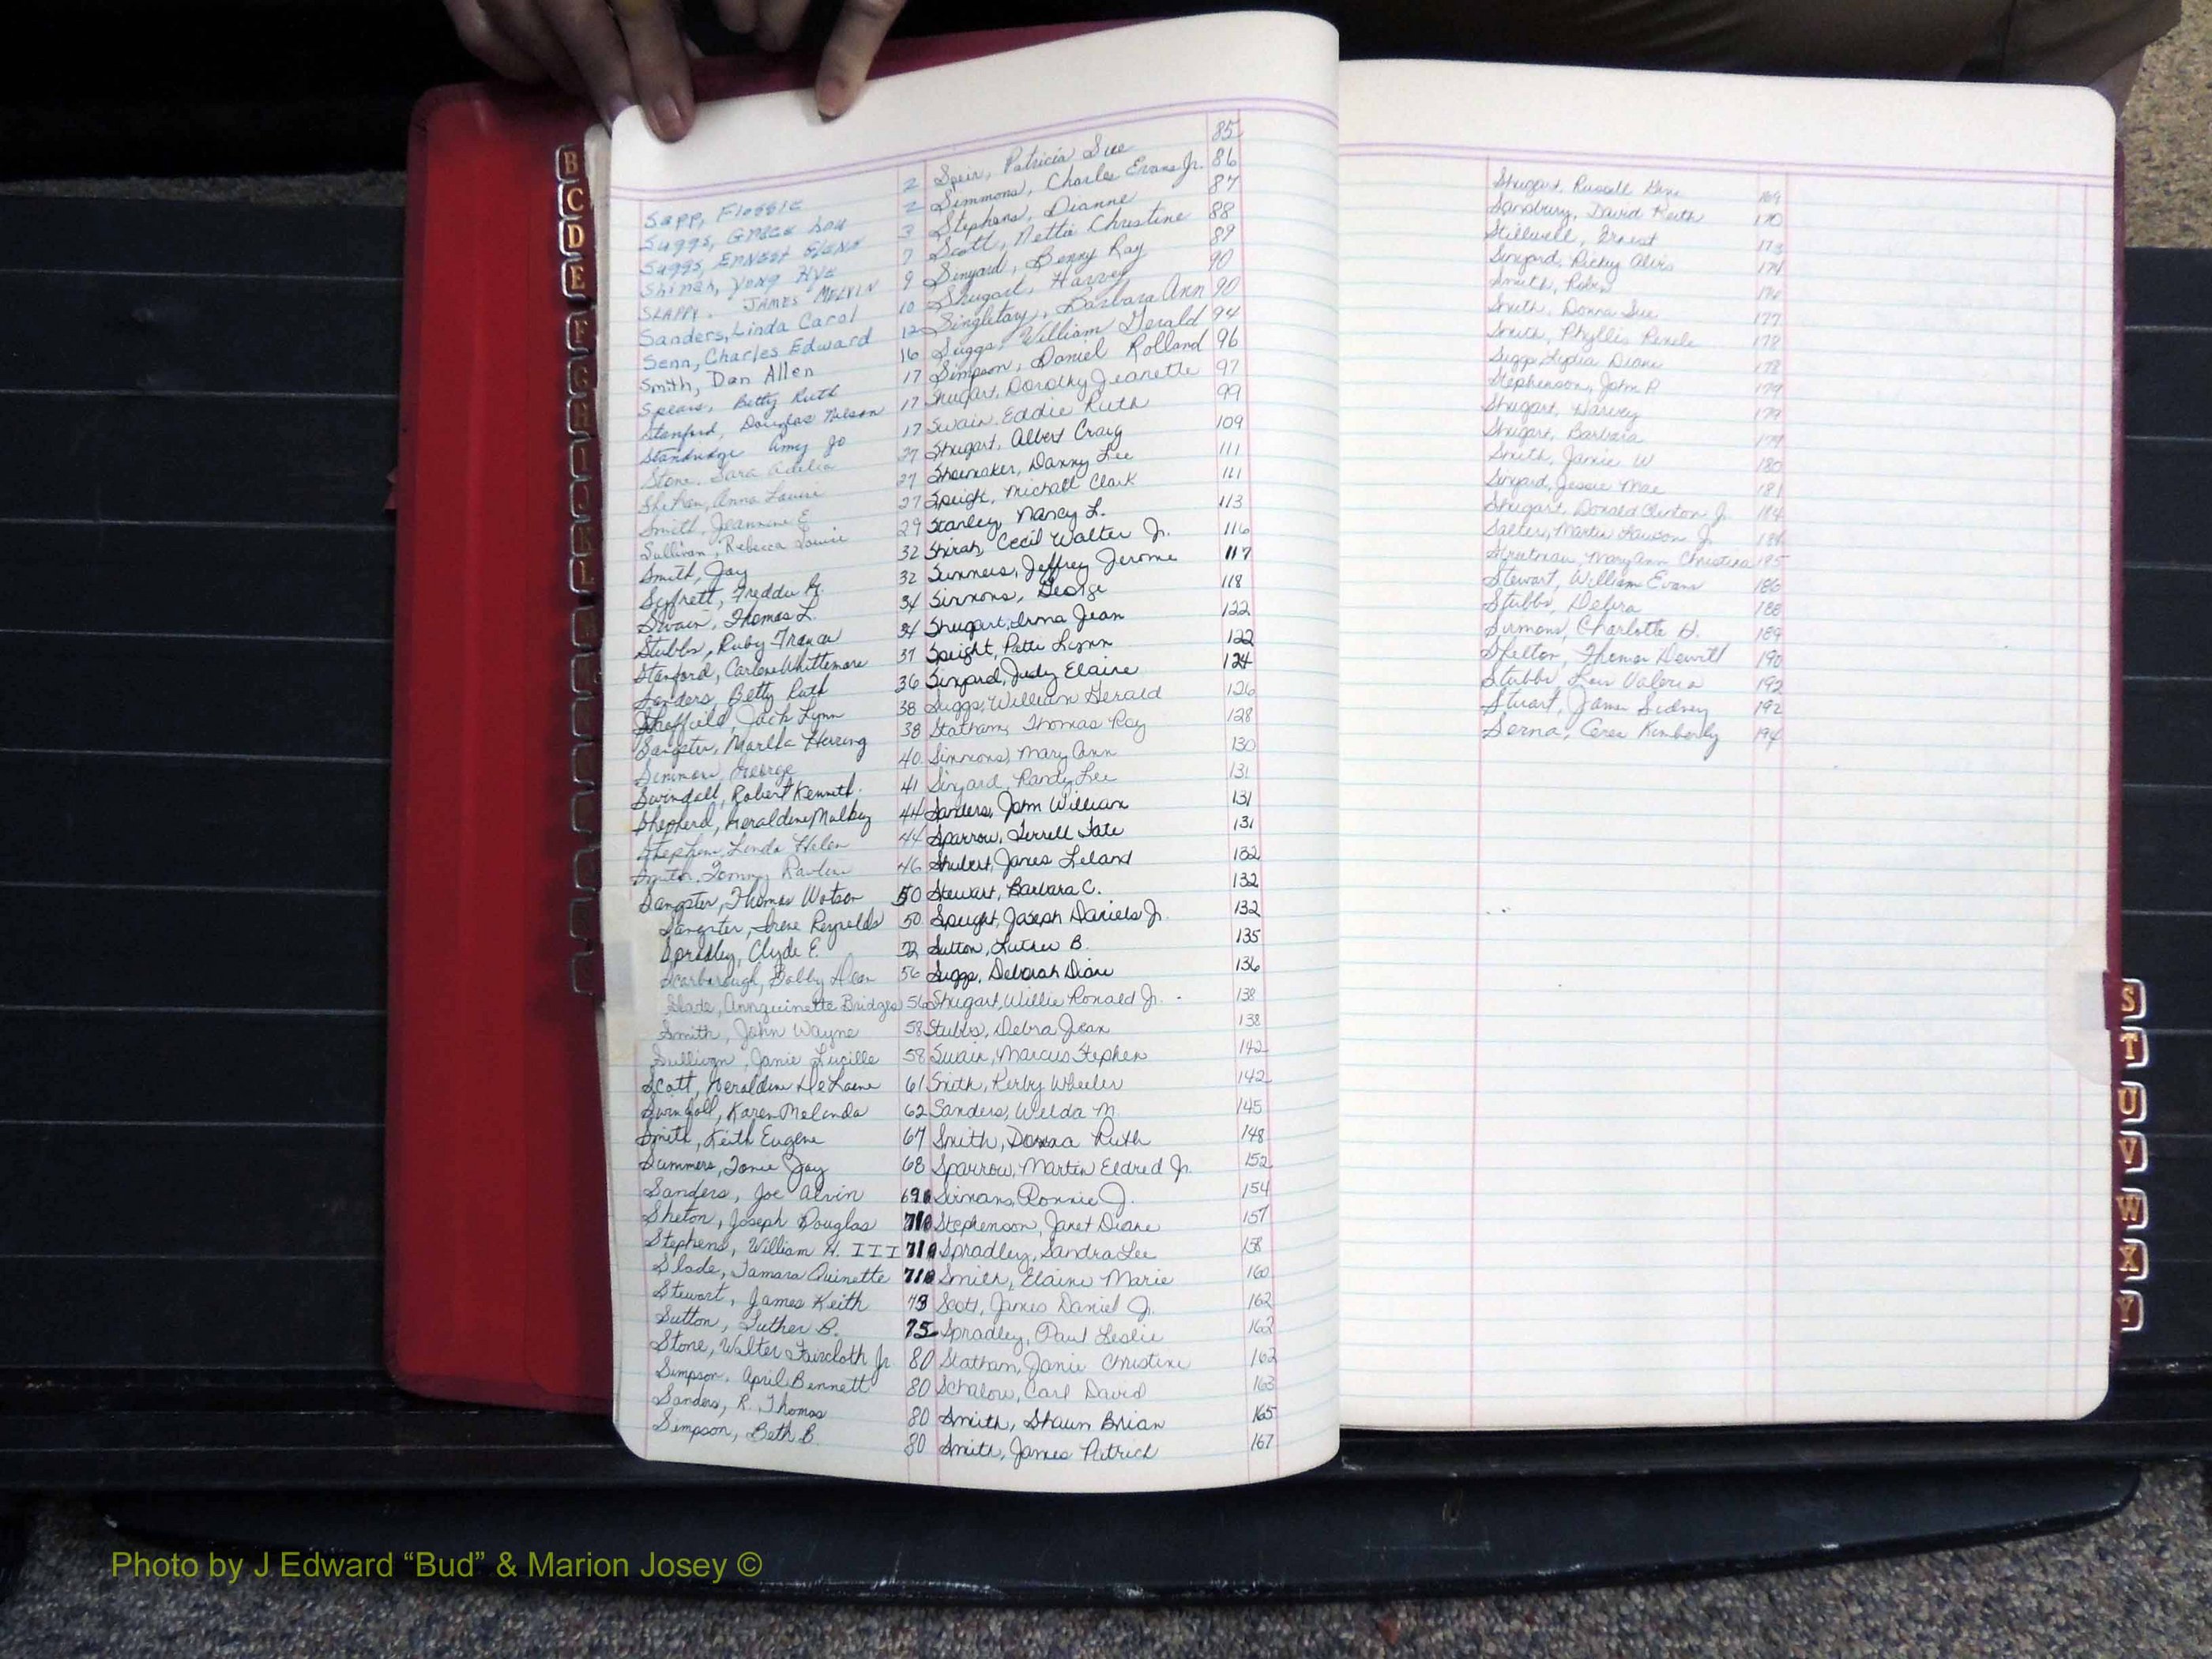 B
C
D
E
F
G
H
I
J
K
L
Sapp, Flossie 2
Suggs, Grace Lou 2
Suggs, Ernest Glenn 3
Shirah, Yong Hye 7
SLAPPY, JAMES MELVIN 9
Sanders, Linda Carol 10
Senn, Charles Edward 12
Smith, Dan Allen 16
Spears, Betty Ruth 17
Stanford, Douglas Nelson 17
Standridge Amy Jo 17
Stone, Sara Adelia 27
Anna Louise 27
Smith, Jeannine E. 27
Sullivan, Rebecca Louise 29
Smith, Jay 32
Seyfrett, Freddie 32
Swain, Thomas L. 34
Stubbs, Ruby Frances 34
Stanford, Carlene Whittemore 37
Sanders, Betty Ruth 36
Sheffield, Jack Lynn 38
Sangster, Martha Herring 38
Simmons, George 40
Swindall, Robert Kenneth. 41
Shepherd, Geraldine Mulkey 44
Stephens, Linda Helen 44
Smith, Tommy 46
Sangster, Thomas Watson 50
Sangster, Irene Reynolds 50
Spradley, Clyde E.
Scarborough, Bobby Dean 56
Slade, Annquinette Bridges 56
Smith, John Wayne 58
Sullivan, Janie Lucille 58
Scott, Geraldine DeLaine 61
Swindall, Karen Melinda 62
Smith, Keith Eugene 67
Summers, Tonie Jay 68
Sanders, Joe Alvin 69
Shelton, Joseph Douglas 71
Stephens, William H. III 71
Slade, Tamara Quinette 71
Stewart, James Keith 73
Sutton, Luther B. 75
Stone, Walter Faircloth Jr. 80
Simpson, April Bennett 80
Sanders, R. Thomas 80
Simpson, Beth B. 80
Speir, Patricia Sue 85
Simmons, Charles Evans Jr. 86
Stephens, Dianne 87
Scott, Nettie Christine 88
Sinyard, Benny Ray 89
Shugart, Harvey 90
Singletary, Barbara Ann 90
Suggs, William Gerald 94
Simpson, Daniel Rolland 96
Shugart, Dorothy Jeanette 97
Swain, Eddie Ruth 99
Shugart, Albert Craig 109
Shoemaker, Danny Lee 111
Speight, Michall Clark 111
Stanley, Nancy L. 113
Shirah, Cecil Walter Jr. 116
Summers, Jeffrey Jerome 117
Sirmons, George 118
Shugart, Irma Jean 122
Speight, Patti Lynn 122
Sinyard, Judy Elaine 124
Suggs, William Gerald 126
Statham, Thomas Ray 128
Simmons, Mary Ann 130
Sinyard, Randy Lee 131
Sanders, John William 131
Sparrow, Terrell Tate 131
Shubert, James Leland 132
Stewart, Barbara C. 132
Speight, Joseph Daniels Jr. 132
Sutton, Luther B. 135
Suggs, Deborah Diane 136
Shugart, Willie Ronald Jr. 138
Stubbs, Debra Jean 138
Swain, Marcus Stephen 142
Smith, Kerby Wheeler 142
Sanders, Welda M. 145
Smith, Donna Ruth 148
Sparrow, Martin Eldred Jr. 152
Sirmans, Ronnie J. 154
Stephenson, Janet Diane 157
Spradley, Sandra Lee 158
Smith, Elaine Marie 160
Scott, James Daniel Jr. 162
Spradley, Paul Leslie 162
Statham, Janie Christine 162
Schalow, Carl David 163
Smith, Shaun Brian 165
Smith, James Patrick 167
Shugart, Russell Gene 169
Sandbury, David Keith 170
Stillwell, Ernest 173
Sinyard, Ricky Alvis 174
Smith, Robin 176
Smith, Donna Sue 177
Smith, Phyllis Renele 178
Suggs, Lydia Diane 178
Stephenson, John P. 179
Shugart, Harvey 179
Shugart, Barbara 179
Smith, Janie W. 180
Sinyard, Jessie Mae 181
Shugart, Donald Clinton Jr. 184
Salter, Martin Lawson Jr. 184
Streetman, Mary Ann Christina 185
Stewart, William Evans 186
Stubbs, Debra 188
Sirmons, Charlotte H. 189
Skelton, Thomas Dewitt 190
Stubbs, Lois Valeria 192
Stuart, James Sidney 192
Serna, Ceres Kimberly 194
S
T
U
V
W
X
Y
Photo by J Edward “Bud” & Marion Josey ©